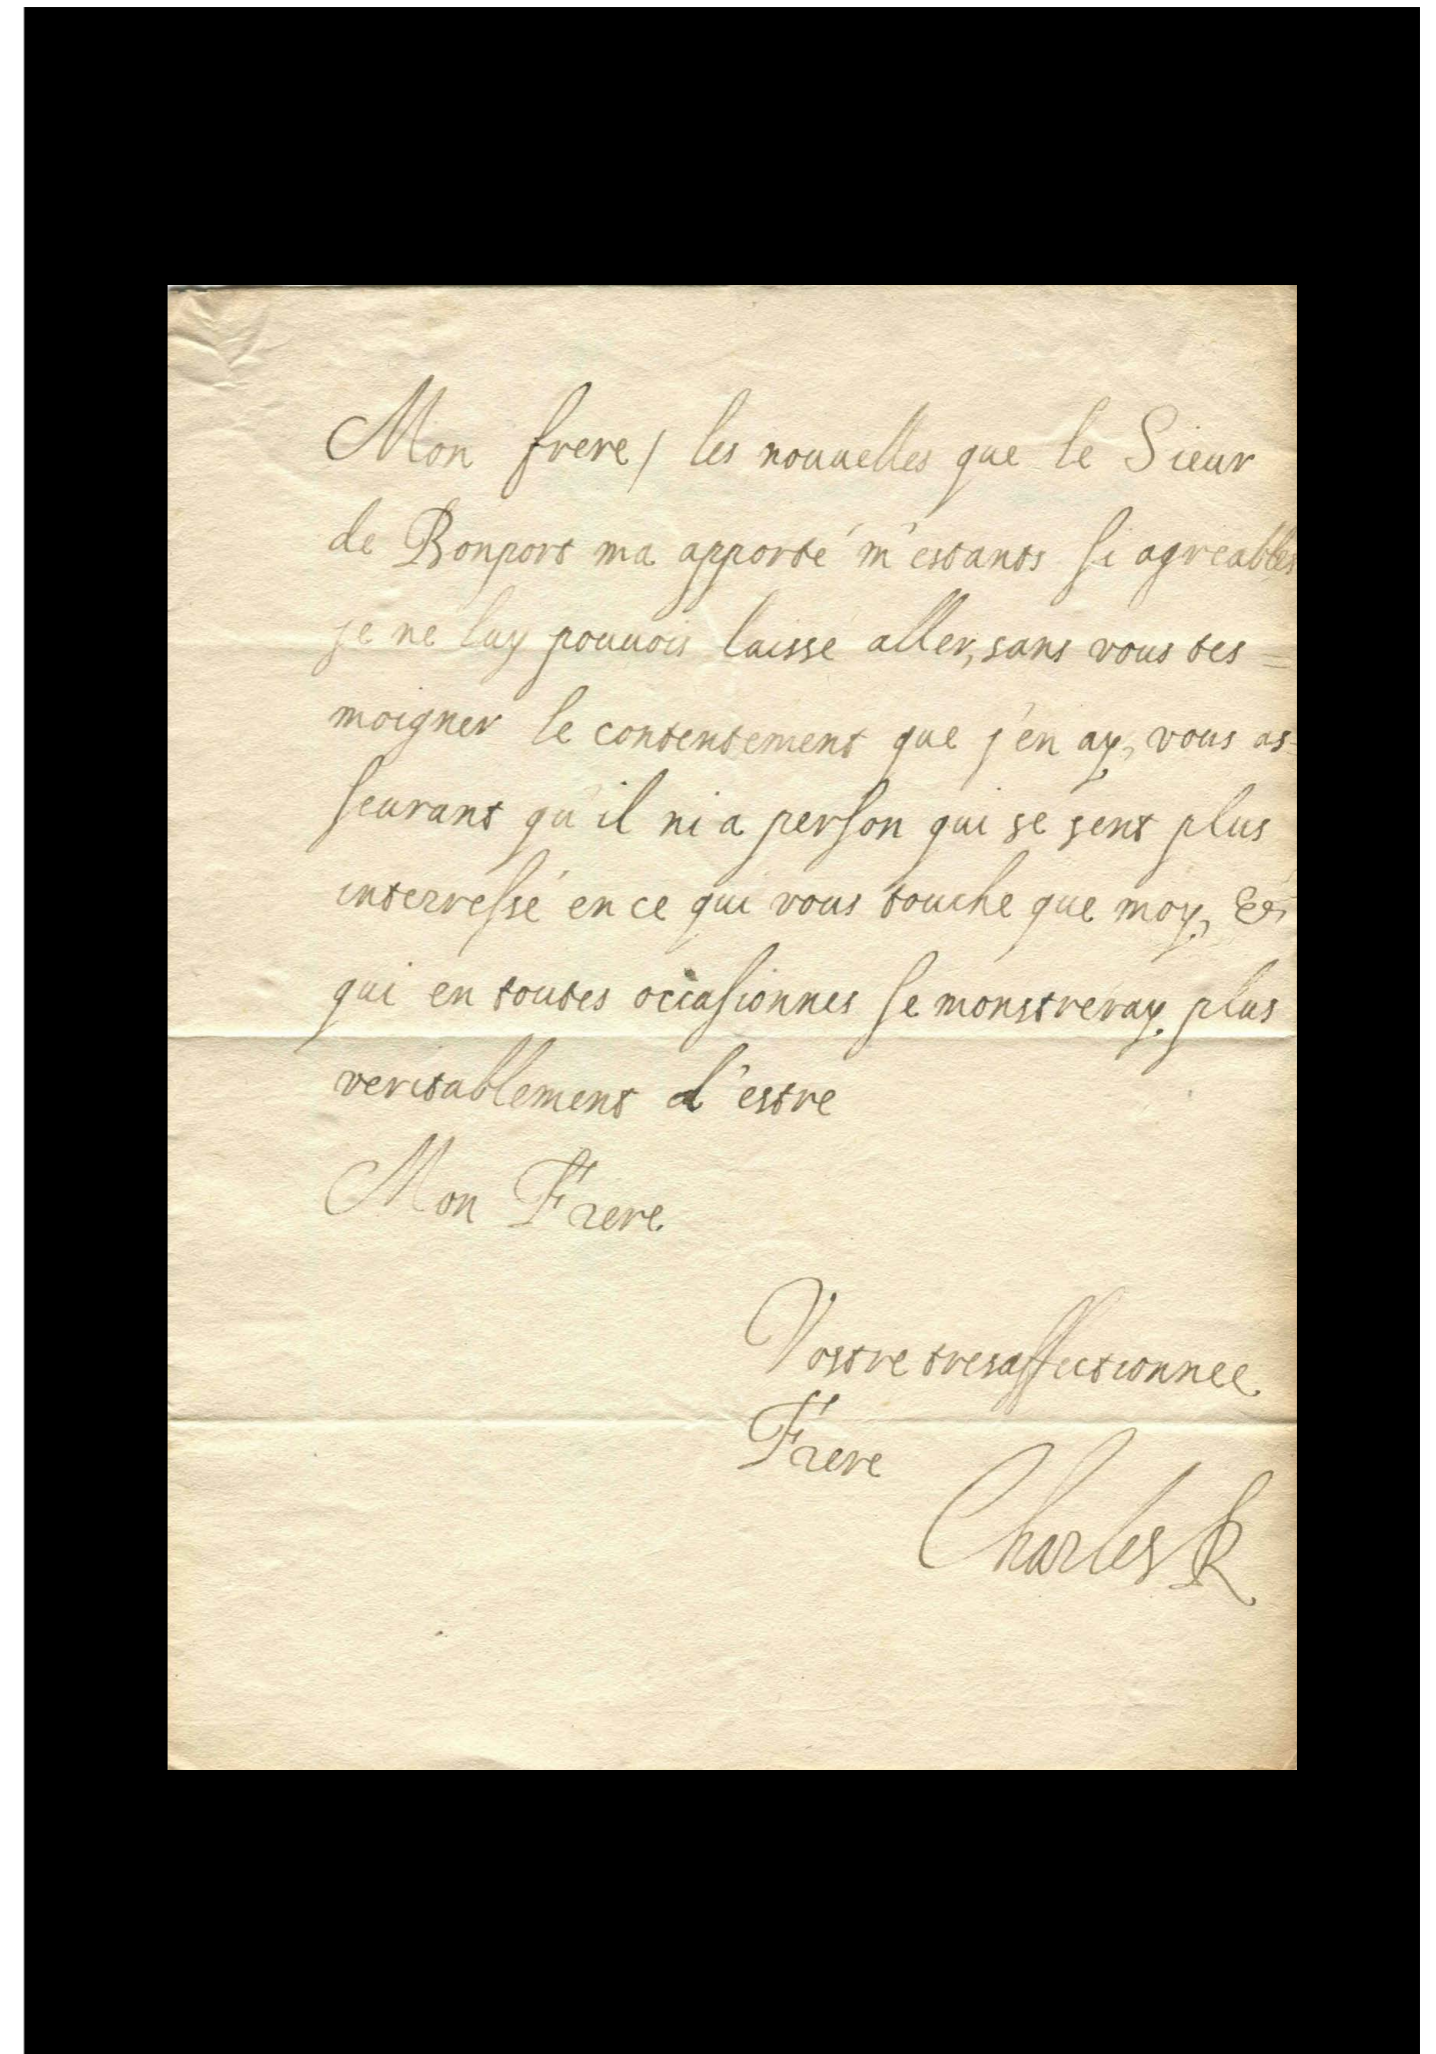 Mon frere/ les nouuelles que le Sieur
de Bonport ma apporté m'estants si agreables
je ne luy pouuois laissé aller, sans vous tes=
moigner le contentement que j'en ay, vous as=
seurant qu'il ni a person qui se sent plus
interressé en ce qui vous touche que moy, &
qui en toutes occasionnes se monstreray plus
veritablement d'estre
Mon Frere
Vostre tresaffectionnee
Frere
Charles R